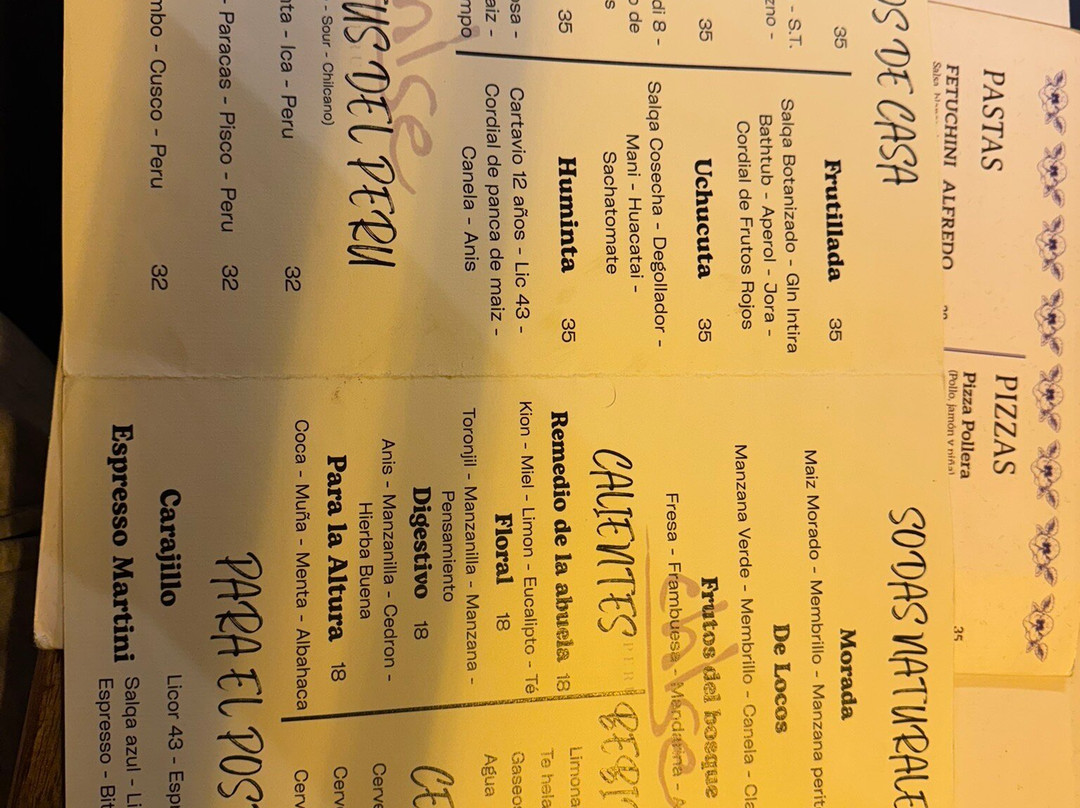 PASTAS
FETUCHINI ALFREDO
PIZZAS
Pizza Pollera
(Pollo, jamón y piña)
35
OS DE CASA
35
- S.T.
zno -
35
di 8 -
o de
s
35
osa -
aiz -
mpo
Frutillada 35
Salqa Botanizado - GIn Intira
Bathtub - Aperol - Jora -
Cordial de Frutos Rojos
Uchucuta 35
Salqa Cosecha - Degollador -
Mani - Huacatai -
Sachatomate
Huminta 35
Cartavio 12 años - Lic 43 -
Cordial de panca de maiz -
Canela - Anis
US DEL PERU
- Sour - Chilcano)
nta - Ica - Peru 32
- Paracas - Pisco - Peru 32
mbo - Cusco - Peru 32
SODAS NATURALE
Morada
Maiz Morado - Membrillo - Manzana perit
De Locos
Manzana Verde - Membrillo - Canela - Cla
Frutos del bosque
Fresa - Frambuesa - Mandarina - A
CALIENTES
Remedio de la abuela 18
Kion - Miel - Limon - Eucalipto - Té
Floral 18
Toronjil - Manzanilla - Manzana -
Pensamiento
Digestivo 18
Anis - Manzanilla - Cedron -
Hierba Buena
Para la Altura 18
Coca - Muña - Menta - Albahaca
BEBI
Limona
Te hela
Gaseo
Agua
CE
Cerve
Cerv
Cerv
PARA EL POS
Carajillo
Licor 43 - Esp
Espresso Martini
Salqa azul - Li
Espresso - Bit